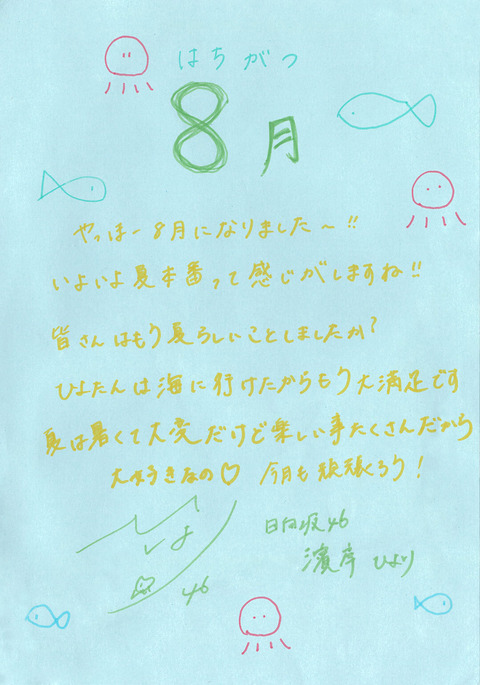 はちがつ
8月
やっほー8月になりました〜!!
いよいよ夏本番って感じがしますね!!
皆さんはもう夏らしいことしましたか?
ひよたんは海に行けたからもう大満足です
夏は暑くて大変だけど楽しい事たくさんだから
大すきなの♡ 今月も頑張ろう!
ひよ
46
日向坂46
濱岸 ひより